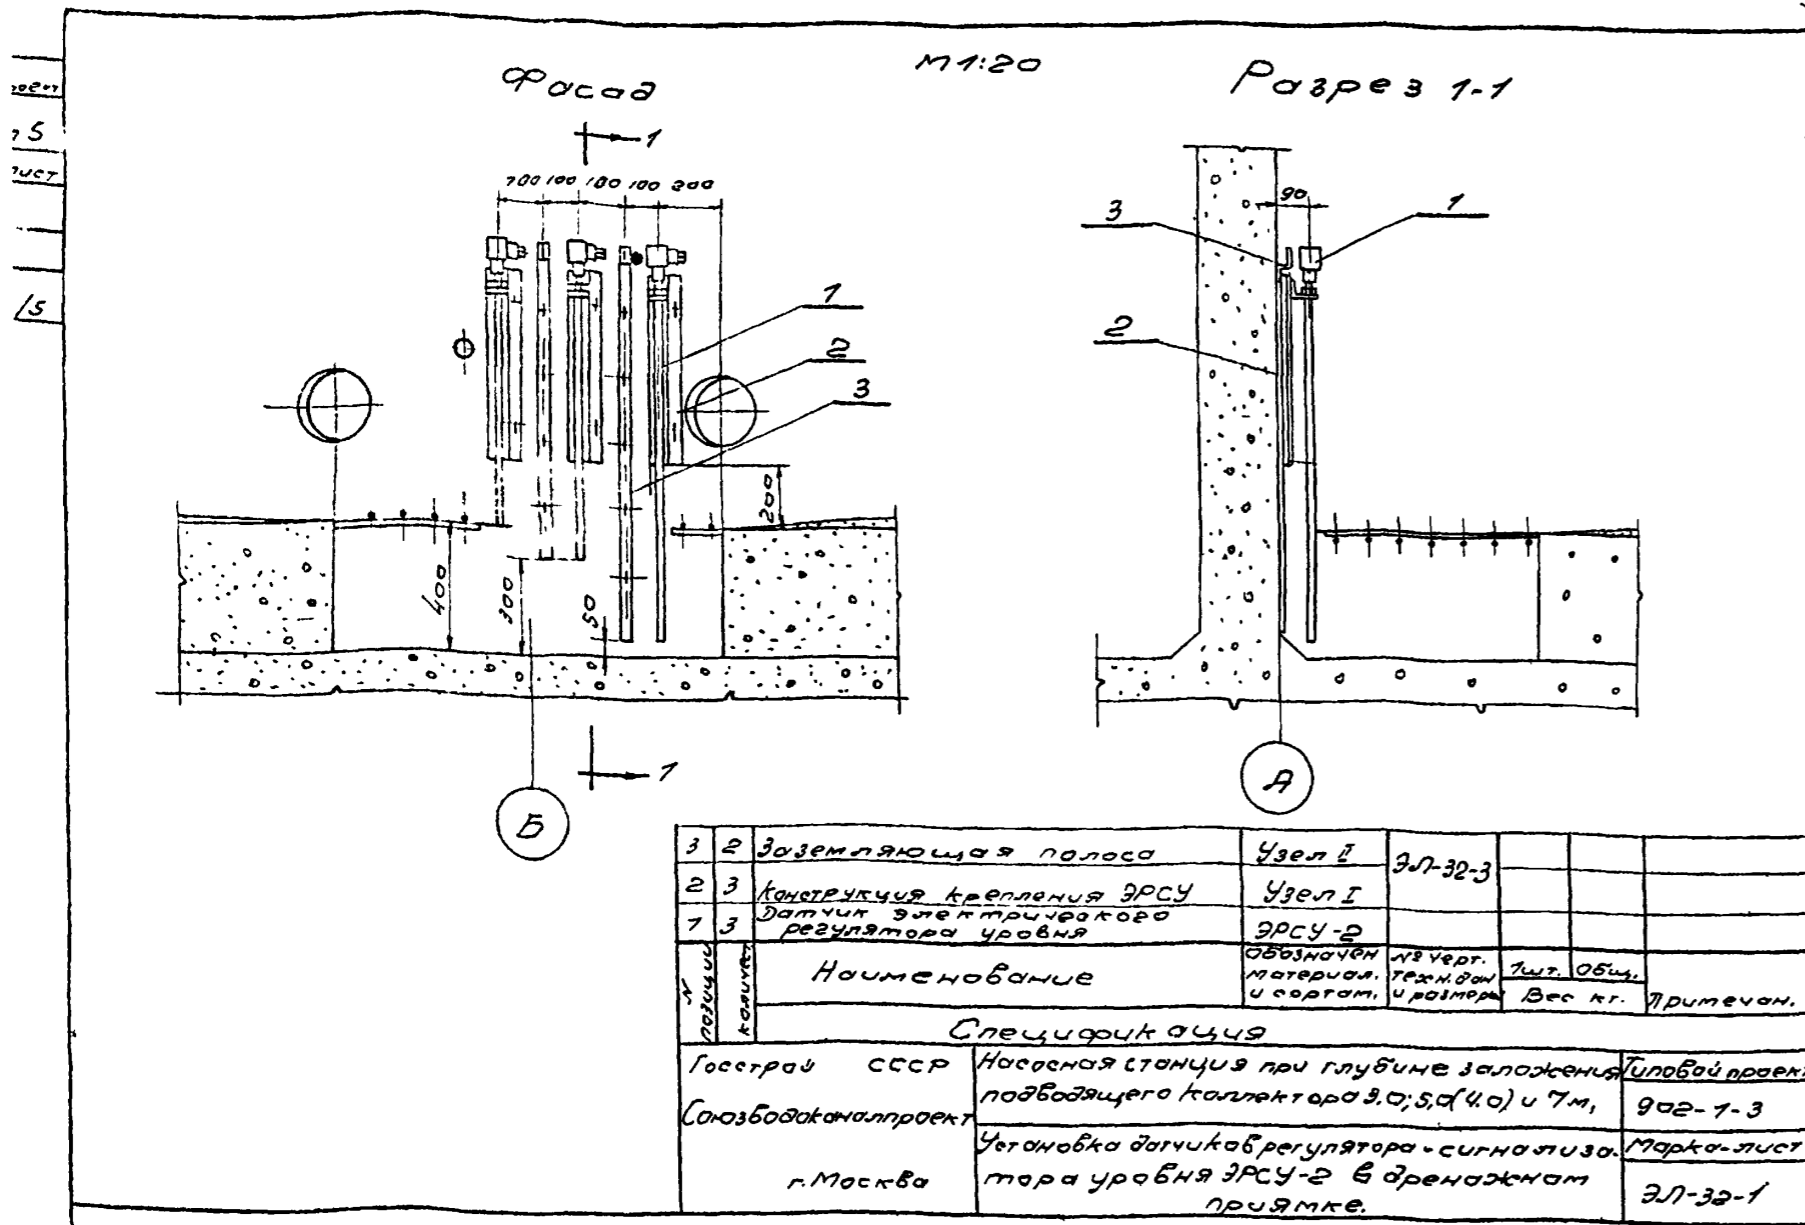 М1:20
Фасад
Разрез 1-1
5
лист
/5
1
700 100 100 100 200
1
2
3
200
400
300
50
1
Б
90
3
1
2
А
3 2 Заземляющая полоса Узел II ЭЛ-32-3
2 3 Конструкция крепления ЭРСУ Узел I
1 3 Датчик электрического
регулятора уровня ЭРСУ-2
N позиции
количест.
Наименование
Обозначен
материал.
и сортам.
№ черт.
техн. дан
и размеры
1шт. Общ.
Вес кг.
Примечан.
Спецификация
Госстрой СССР
Союзводоканалпроект
г. Москва
Насосная станция при глубине заложения
подводящего коллектора 3.0; 5,0(4.0) и 7м,
Установка датчиков регулятора-сигнализа-
тора уровня ЭРСУ-2 в дренажном
приямке.
Типовой проект
902-1-3
Марка-лист
ЭЛ-32-1